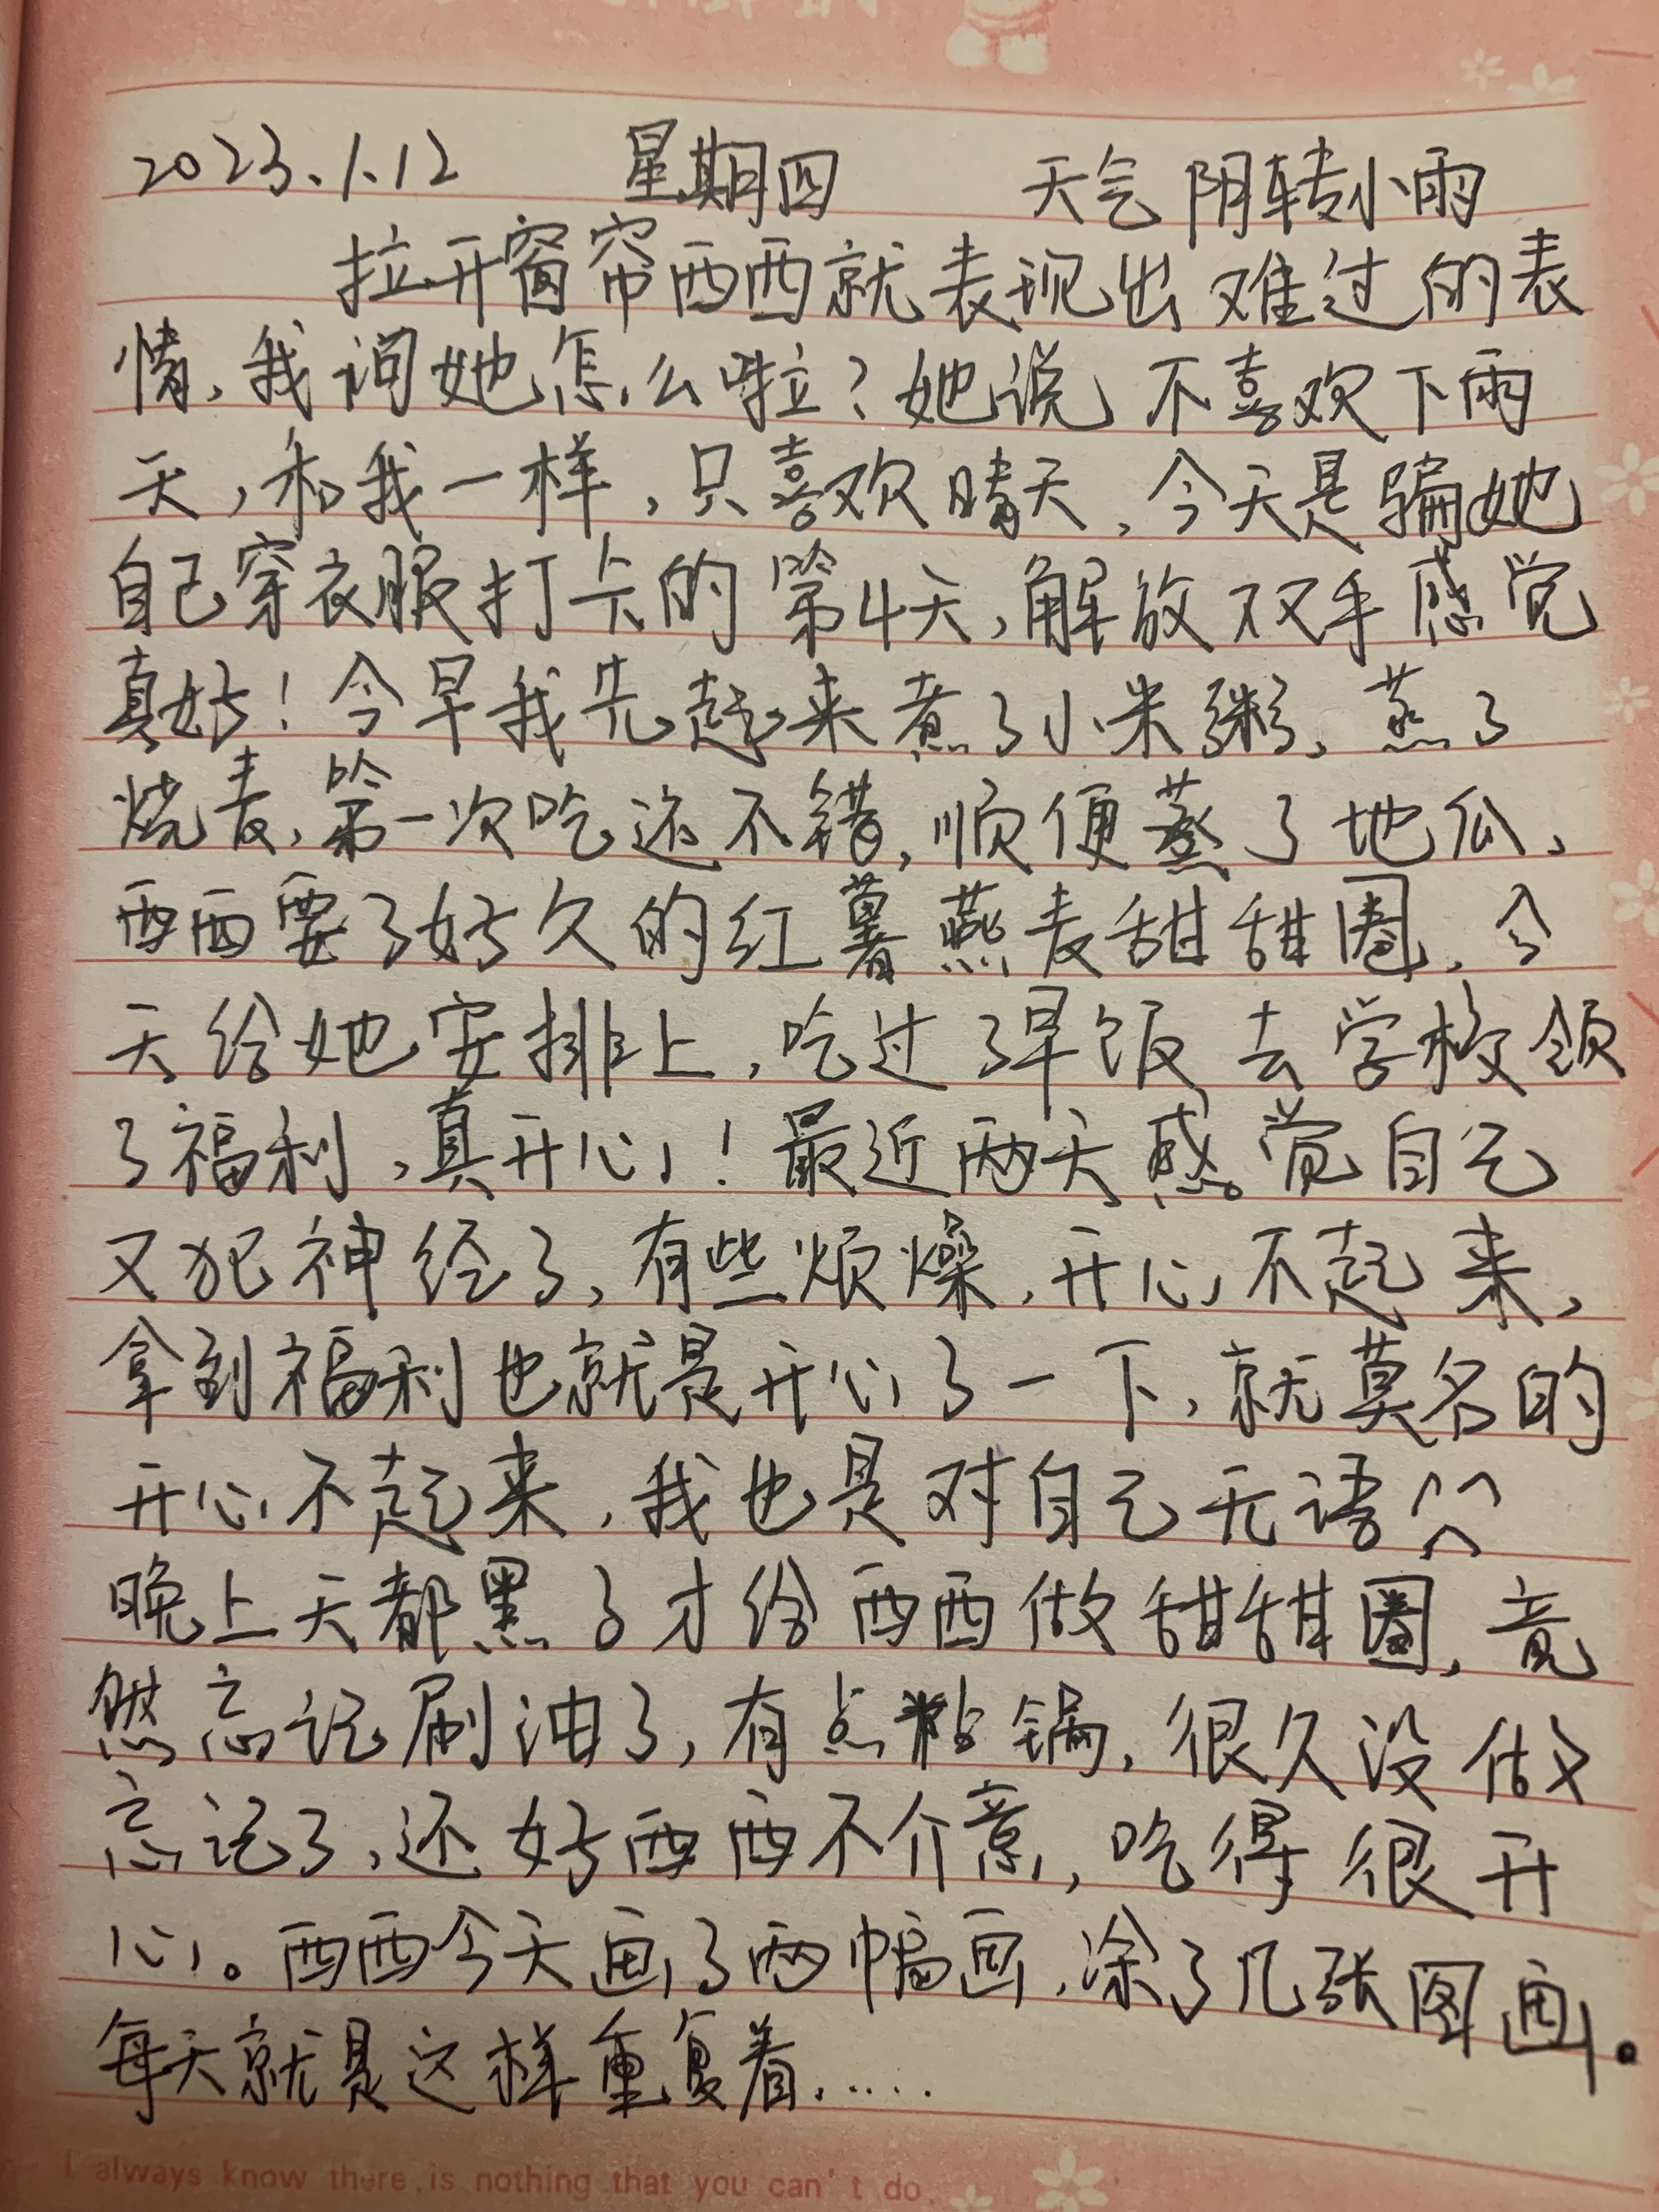 2023.1.12 星期四 天气 阴转小雨
拉开窗帘西西就表现出难过的表
情,我问她怎么啦?她说不喜欢下雨
天,和我一样,只喜欢晴天,今天是骗她
自己穿衣服打卡的第4天,解放双手感觉
真好!今早我先起来煮了小米粥,蒸了
烧麦,第一次吃还不错,顺便蒸了地瓜,
西西要了好久的红薯燕麦甜甜圈,今
天给她安排上,吃过了早饭去学校领
了福利,真开心!最近两天感觉自己
又犯神经了,有些烦燥,开心不起来,
拿到福利也就是开心了一下,就莫名的
开心不起来,我也是对自己无语
晚上天都黑了才给西西做甜甜圈,竟
然忘记刷油了,有点粘锅,很久没做
忘记了,还好西西不介意,吃得很开
心。西西今天画了两幅画,涂了几张图画。
每天就是这样重复着......
I always know there is nothing that you can't do.